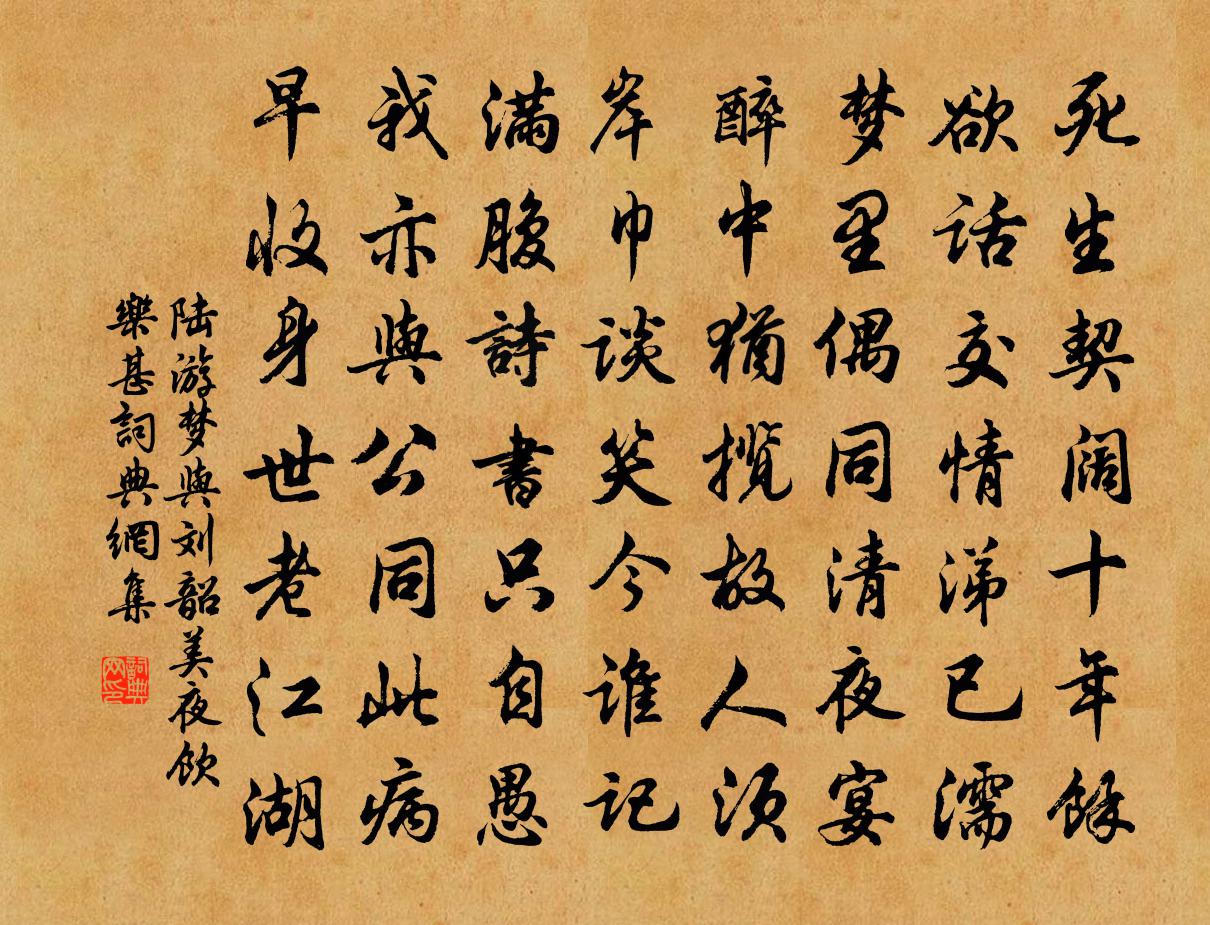 死生契阔十年餘
欲话交情涕已濡
梦里偶同清夜宴
醉中猶揽故人须
岸巾谈笑今谁记
满腹詩書只自愚
我亦與公同此病
早收身世老江湖
陆游梦與刘韶美夜饮
樂甚詞典網集
詞典网印